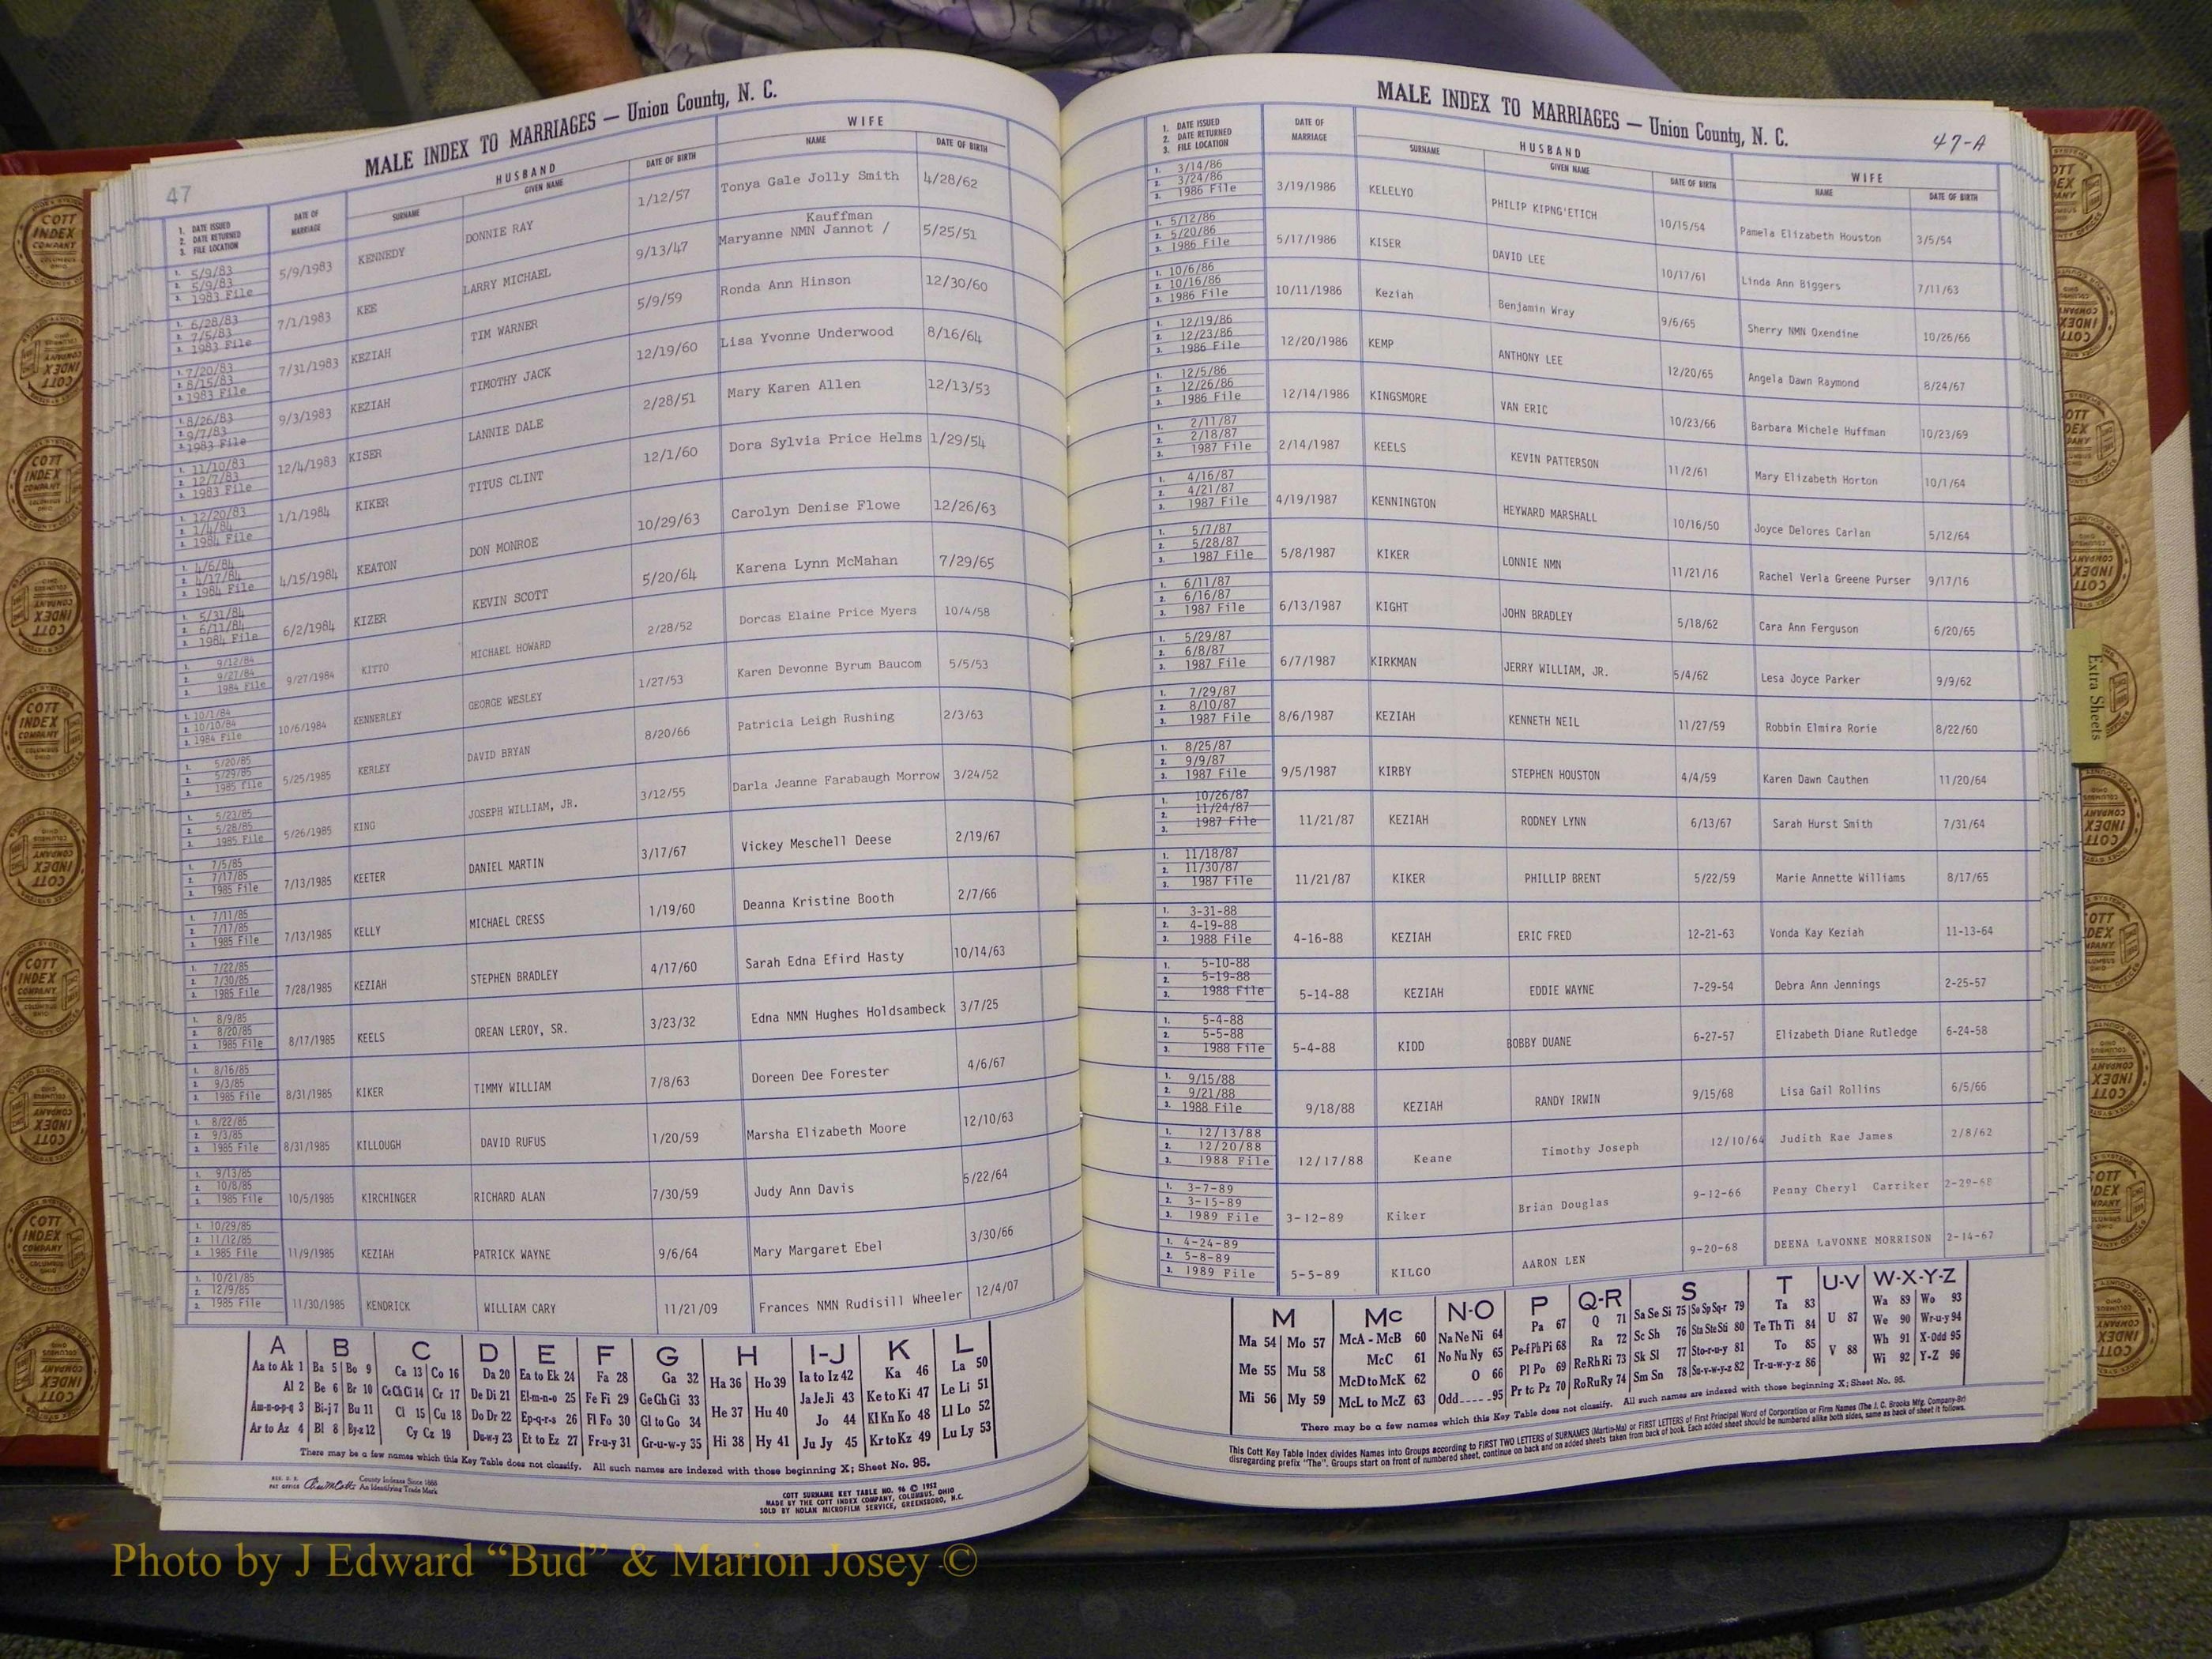 47
MALE INDEX TO MARRIAGES — Union County, N. C.
1. DATE ISSUED
2. DATE RETURNED
3. FILE LOCATION
DATE OF MARRIAGE
HUSBAND
SURNAME GIVEN NAME DATE OF BIRTH
WIFE
NAME DATE OF BIRTH
1. 5/9/83 2. 5/9/83 3. 1983 File 5/9/1983 KENNEDY DONNIE RAY 1/12/57 Tonya Gale Jolly Smith 4/28/62
1. 6/28/83 2. 7/5/83 3. 1983 File 7/1/1983 KEE LARRY MICHAEL 9/13/47 Maryanne NMN Jannot / Kauffman 5/25/51
1. 7/20/83 2. 8/15/83 3. 1983 File 7/31/1983 KEZIAH TIM WARNER 5/9/59 Ronda Ann Hinson 12/30/60
1. 8/26/83 2. 9/7/83 3. 1983 File 9/3/1983 KEZIAH TIMOTHY JACK 12/19/60 Lisa Yvonne Underwood 8/16/64
1. 11/10/83 2. 12/7/83 3. 1983 File 12/4/1983 KISER LANNIE DALE 2/28/51 Mary Karen Allen 12/13/53
1. 12/20/83 2. 1/4/84 3. 1984 File 1/1/1984 KIKER TITUS CLINT 12/1/60 Dora Sylvia Price Helms 1/29/54
1. 4/6/84 2. 4/17/84 3. 1984 File 4/15/1984 KEATON DON MONROE 10/29/63 Carolyn Denise Flowe 12/26/63
1. 5/31/84 2. 6/11/84 3. 1984 File 6/2/1984 KIZER KEVIN SCOTT 5/20/64 Karena Lynn McMahan 7/29/65
1. 9/12/84 2. 9/27/84 3. 1984 File 9/27/1984 KITTO MICHAEL HOWARD 2/28/52 Dorcas Elaine Price Myers 10/4/58
1. 10/1/84 2. 10/10/84 3. 1984 File 10/6/1984 KENNERLEY GEORGE WESLEY 1/27/53 Karen Devonne Byrum Baucom 5/5/53
1. 5/20/85 2. 5/29/85 3. 1985 File 5/25/1985 KERLEY DAVID BRYAN 8/20/66 Patricia Leigh Rushing 2/3/63
1. 5/23/85 2. 5/28/85 3. 1985 File 5/26/1985 KING JOSEPH WILLIAM, JR. 3/12/55 Darla Jeanne Farabaugh Morrow 3/24/52
1. 7/5/85 2. 7/17/85 3. 1985 File 7/13/1985 KEETER DANIEL MARTIN 3/17/67 Vickey Meschell Deese 2/19/67
1. 7/11/85 2. 7/17/85 3. 1985 File 7/13/1985 KELLY MICHAEL CRESS 1/19/60 Deanna Kristine Booth 2/7/66
1. 7/22/85 2. 7/30/85 3. 1985 File 7/28/1985 KEZIAH STEPHEN BRADLEY 4/17/60 Sarah Edna Efird Hasty 10/14/63
1. 8/9/85 2. 8/20/85 3. 1985 File 8/17/1985 KEELS OREAN LEROY, SR. 3/23/32 Edna NMN Hughes Holdsambeck 3/7/25
1. 8/16/85 2. 9/3/85 3. 1985 File 8/31/1985 KIKER TIMMY WILLIAM 7/8/63 Doreen Dee Forester 4/6/67
1. 8/22/85 2. 9/3/85 3. 1985 File 8/31/1985 KILLOUGH DAVID RUFUS 1/20/59 Marsha Elizabeth Moore 12/10/63
1. 9/13/85 2. 10/8/85 3. 1985 File 10/5/1985 KIRCHINGER RICHARD ALAN 7/30/59 Judy Ann Davis 5/22/64
1. 10/29/85 2. 11/12/85 3. 1985 File 11/9/1985 KEZIAH PATRICK WAYNE 9/6/64 Mary Margaret Ebel 3/30/66
1. 10/21/85 2. 12/9/85 3. 1985 File 11/30/1985 KENDRICK WILLIAM CARY 11/21/09 Frances NMN Rudisill Wheeler 12/4/07
A B C D E F G H I-J K L
Aa to Ak 1 Ba 5 Bo 9 Ca 13 Co 16 Da 20 Ea to Ek 24 Fa 28 Ga 32 Ha 36 Ho 39 Ia to Iz 42 Ka 46 La 50
Al 2 Be 6 Br 10 Ce Ch Ci 14 Cr 17 De Di 21 El-m-n-o 25 Fe Fi 29 Ge Gh Gi 33 Ja Je Ji 43 Ke to Ki 47 Le Li 51
Am-n-o-p-q 3 Bi-j 7 Bu 11 Cl 15 Cu 18 Do Dr 22 Ep-q-r-s 26 Fl Fo 30 Gl to Go 34 He 37 Hu 40 Jo 44 Kl Kn Ko 48 Ll Lo 52
Ar to Az 4 Bl 8 By-z 12 Cy Cz 19 Du-w-y 23 Et to Ez 27 Fr-u-y 31 Gr-u-w-y 35 Hi 38 Hy 41 Ju Jy 45 Kr to Kz 49 Lu Ly 53
There may be a few names which this Key Table does not classify. All such names are indexed with those beginning X; Sheet No. 95.
REG. U. S. PAT OFFICE County Indexes Since 1888
An Identifying Trade Mark
COTT SURNAME KEY TABLE NO. 96 © 1952
MADE BY THE COTT INDEX COMPANY, COLUMBUS, OHIO
SOLD BY NOLAN MICROFILM SERVICE, GREENSBORO, N.C.
MALE INDEX TO MARRIAGES — Union County, N. C.
47-A
1. DATE ISSUED
2. DATE RETURNED
3. FILE LOCATION
DATE OF MARRIAGE
HUSBAND
SURNAME GIVEN NAME DATE OF BIRTH
WIFE
NAME DATE OF BIRTH
1. 3/14/86 2. 3/24/86 3. 1986 File 3/19/1986 KELELYO PHILIP KIPNG'ETICH 10/15/54 Pamela Elizabeth Houston 3/5/54
1. 5/12/86 2. 5/20/86 3. 1986 File 5/17/1986 KISER DAVID LEE 10/17/61 Linda Ann Biggers 7/11/63
1. 10/6/86 2. 10/16/86 3. 1986 File 10/11/1986 Keziah Benjamin Wray 9/6/65 Sherry NMN Oxendine 10/26/66
1. 12/19/86 2. 12/23/86 3. 1986 File 12/20/1986 KEMP ANTHONY LEE 12/20/65 Angela Dawn Raymond 8/24/67
1. 12/5/86 2. 12/26/86 3. 1986 File 12/14/1986 KINGSMORE VAN ERIC 10/23/66 Barbara Michele Huffman 10/23/69
1. 2/11/87 2. 2/18/87 3. 1987 File 2/14/1987 KEELS KEVIN PATTERSON 11/2/61 Mary Elizabeth Horton 10/1/64
1. 4/16/87 2. 4/21/87 3. 1987 File 4/19/1987 KENNINGTON HEYWARD MARSHALL 10/16/50 Joyce Delores Carlan 5/12/64
1. 5/7/87 2. 5/28/87 3. 1987 File 5/8/1987 KIKER LONNIE NMN 11/21/16 Rachel Verla Greene Purser 9/17/16
1. 6/11/87 2. 6/16/87 3. 1987 File 6/13/1987 KIGHT JOHN BRADLEY 5/18/62 Cara Ann Ferguson 6/20/65
1. 5/29/87 2. 6/8/87 3. 1987 File 6/7/1987 KIRKMAN JERRY WILLIAM, JR. 5/4/62 Lesa Joyce Parker 9/9/62
1. 7/29/87 2. 8/10/87 3. 1987 File 8/6/1987 KEZIAH KENNETH NEIL 11/27/59 Robbin Elmira Rorie 8/22/60
1. 8/25/87 2. 9/9/87 3. 1987 File 9/5/1987 KIRBY STEPHEN HOUSTON 4/4/59 Karen Dawn Cauthen 11/20/64
1. 10/26/87 2. 11/24/87 3. 1987 File 11/21/87 KEZIAH RODNEY LYNN 6/13/67 Sarah Hurst Smith 7/31/64
1. 11/18/87 2. 11/30/87 3. 1987 File 11/21/87 KIKER PHILLIP BRENT 5/22/59 Marie Annette Williams 8/17/65
1. 3-31-88 2. 4-19-88 3. 1988 File 4-16-88 KEZIAH ERIC FRED 12-21-63 Vonda Kay Keziah 11-13-64
1. 5-10-88 2. 5-19-88 3. 1988 File 5-14-88 KEZIAH EDDIE WAYNE 7-29-54 Debra Ann Jennings 2-25-57
1. 5-4-88 2. 5-5-88 3. 1988 File 5-4-88 KIDD BOBBY DUANE 6-27-57 Elizabeth Diane Rutledge 6-24-58
1. 9/15/88 2. 9/21/88 3. 1988 File 9/18/88 KEZIAH RANDY IRWIN 9/15/68 Lisa Gail Rollins 6/5/66
1. 12/13/88 2. 12/20/88 3. 1988 File 12/17/88 Keane Timothy Joseph 12/10/64 Judith Rae James 2/8/62
1. 3-7-89 2. 3-15-89 3. 1989 File 3-12-89 Kiker Brian Douglas 9-12-66 Penny Cheryl Carriker 2-29-68
1. 4-24-89 2. 5-8-89 3. 1989 File 5-5-89 KILGO AARON LEN 9-20-68 DEENA LaVONNE MORRISON 2-14-67
M Mc N-O P Q-R S T U-V W-X-Y-Z
Ma 54 Mo 57 McA - McB 60 Na Ne Ni 64 Pa 67 Q 71 Sa Se Si 75 So Sp Sq-r 79 Ta 83 U 87 Wa 89 Wo 93
McC 61 No Nu Ny 65 Pe-f Ph Pi 68 Ra 72 Sc Sh 76 Sta Ste Sti 80 Te Th Ti 84 We 90 Wr-u-y 94
Me 55 Mu 58 McD to McK 62 O 66 Pl Po 69 Re Rh Ri 73 Sk Sl 77 Sto-r-u-y 81 To 85 V 88 Wh 91 X-Odd 95
Mi 56 My 59 McL to McZ 63 Odd 95 Pr to Pz 70 Ro Ru Ry 74 Sm Sn 78 Su-v-w-y-z 82 Tr-u-w-y-z 86 Wi 92 Y-Z 96
There may be a few names which this Key Table does not classify. All such names are indexed with those beginning X; Sheet No. 95.
This Cott Key Table Index divides Names into Groups according to FIRST TWO LETTERS of SURNAMES (Martin-Ma) or FIRST LETTERS of First Principal Word of Corporation or Firm Names (The J. C. Brooks Mfg. Company-Br)
disregarding prefix "The". Groups start on front of numbered sheet, continue on back and on added sheets taken from back of book. Each added sheet should be numbered alike both sides, same as back of sheet it follows.
Extra Sheets
COTT INDEX COMPANY COLUMBUS OHIO
Photo by J Edward “Bud” & Marion Josey ©